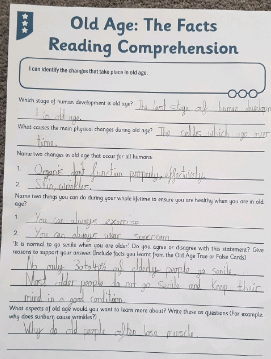 Old Age: The Facts
Reading Comprehension
I can identify the changes that take place in old age.
Which stage of human development is old age? The last stage of human development
is old age.
What causes the main physical changes during old age? The cells which age over
time.
Name two changes in old age that occur for all humans.
1. Organs don't function properly, effectively.
2. Skin wrinkles.
Name two things you can do during your whole lifetime to ensure you are healthy when you are in old
age?
1. You can always exercise
2. You can always wear suncream
'It is normal to go senile when you are older'. Do you agree or disagree with this statement? Give
reasons to support your answer (include facts you learnt from the Old Age True or False Cards)
No only of elderly people go senile.
Most older people do not go senile and keep their
mind in a good condition.
What aspects of old age would you want to learn more about? Write these as questions (For example
why does sunburn cause wrinkles?)
Why do old people often lose muscle